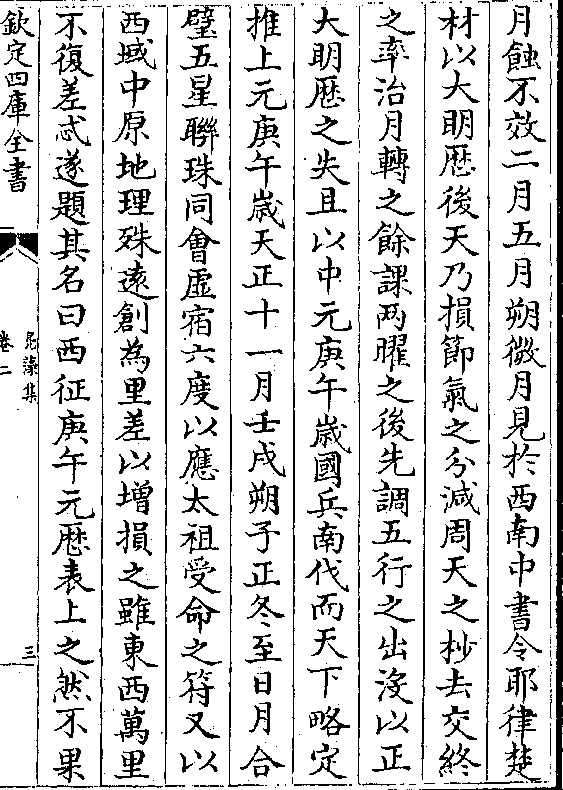 月蝕不效二月五月朔微月見於西南中書令耶律楚
材以大明厯後天乃損節氣之分減周天之杪去交終
之率治月轉之餘課两曜之後先調五行之出没以正
大明厯之失且以中元庚午嵗國兵南伐而天下略定
推上元庚午嵗天正十一月壬戌朔子正冬至日月合
璧五星聨珠同會虚宿六度以應太祖受命之符又以
西域中原地理殊逺創為里差以增損之雖東西萬里
不復差忒遂題其名曰西征庚午元厯表上之然不果
欽定四庫全書
卷二
三